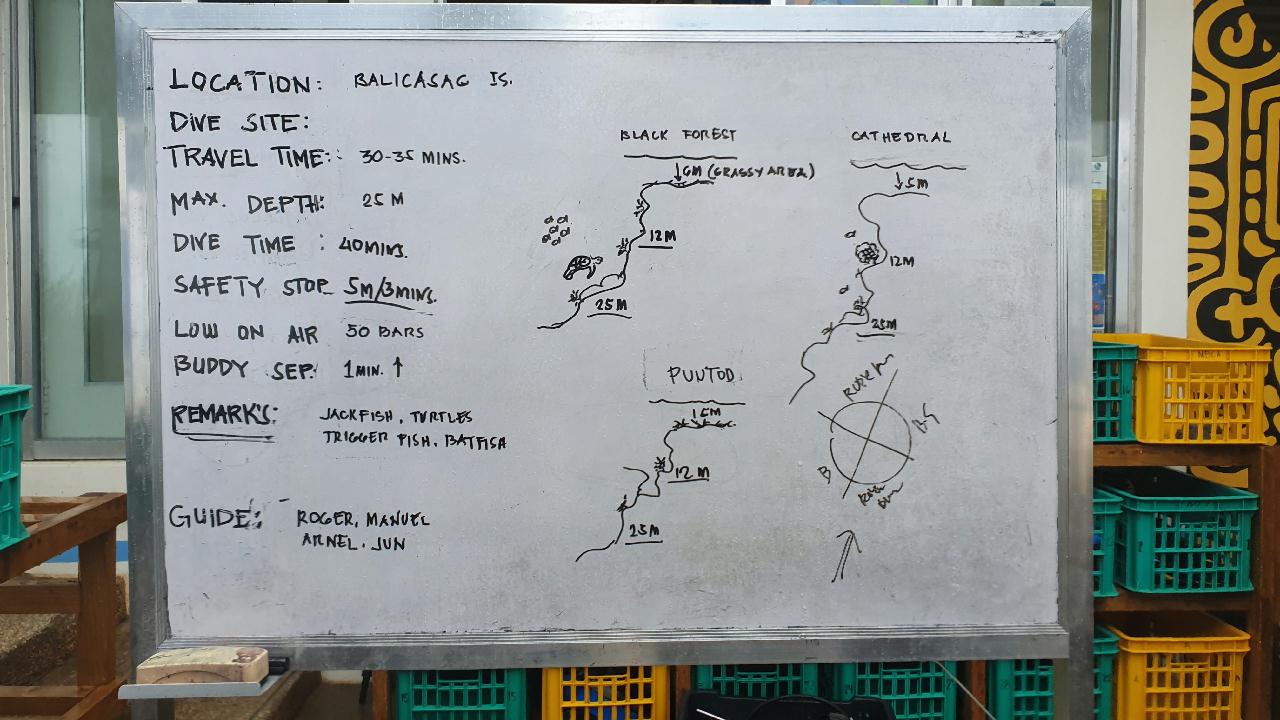 LOCATION: BALICASAG IS.
DIVE SITE:
TRAVEL TIME: 30-35 MINS.
MAX. DEPTH: 25 M
DIVE TIME : 40MINS.
SAFETY STOP 5M/3MINS.
LOW ON AIR 50 BARS
BUDDY SEP: 1MIN. ↑
REMARK'S: JACKFISH, TURTLES
TRIGGER FISH, BATFISH
GUIDE: ROGER, MANUEL
ARNEL, JUN
BLACK FOREST
↓6M (GRASSY AREA)
12M
25M
CATHEDRAL
↓5M
12M
25M
PUNTOD
12M
25M
B